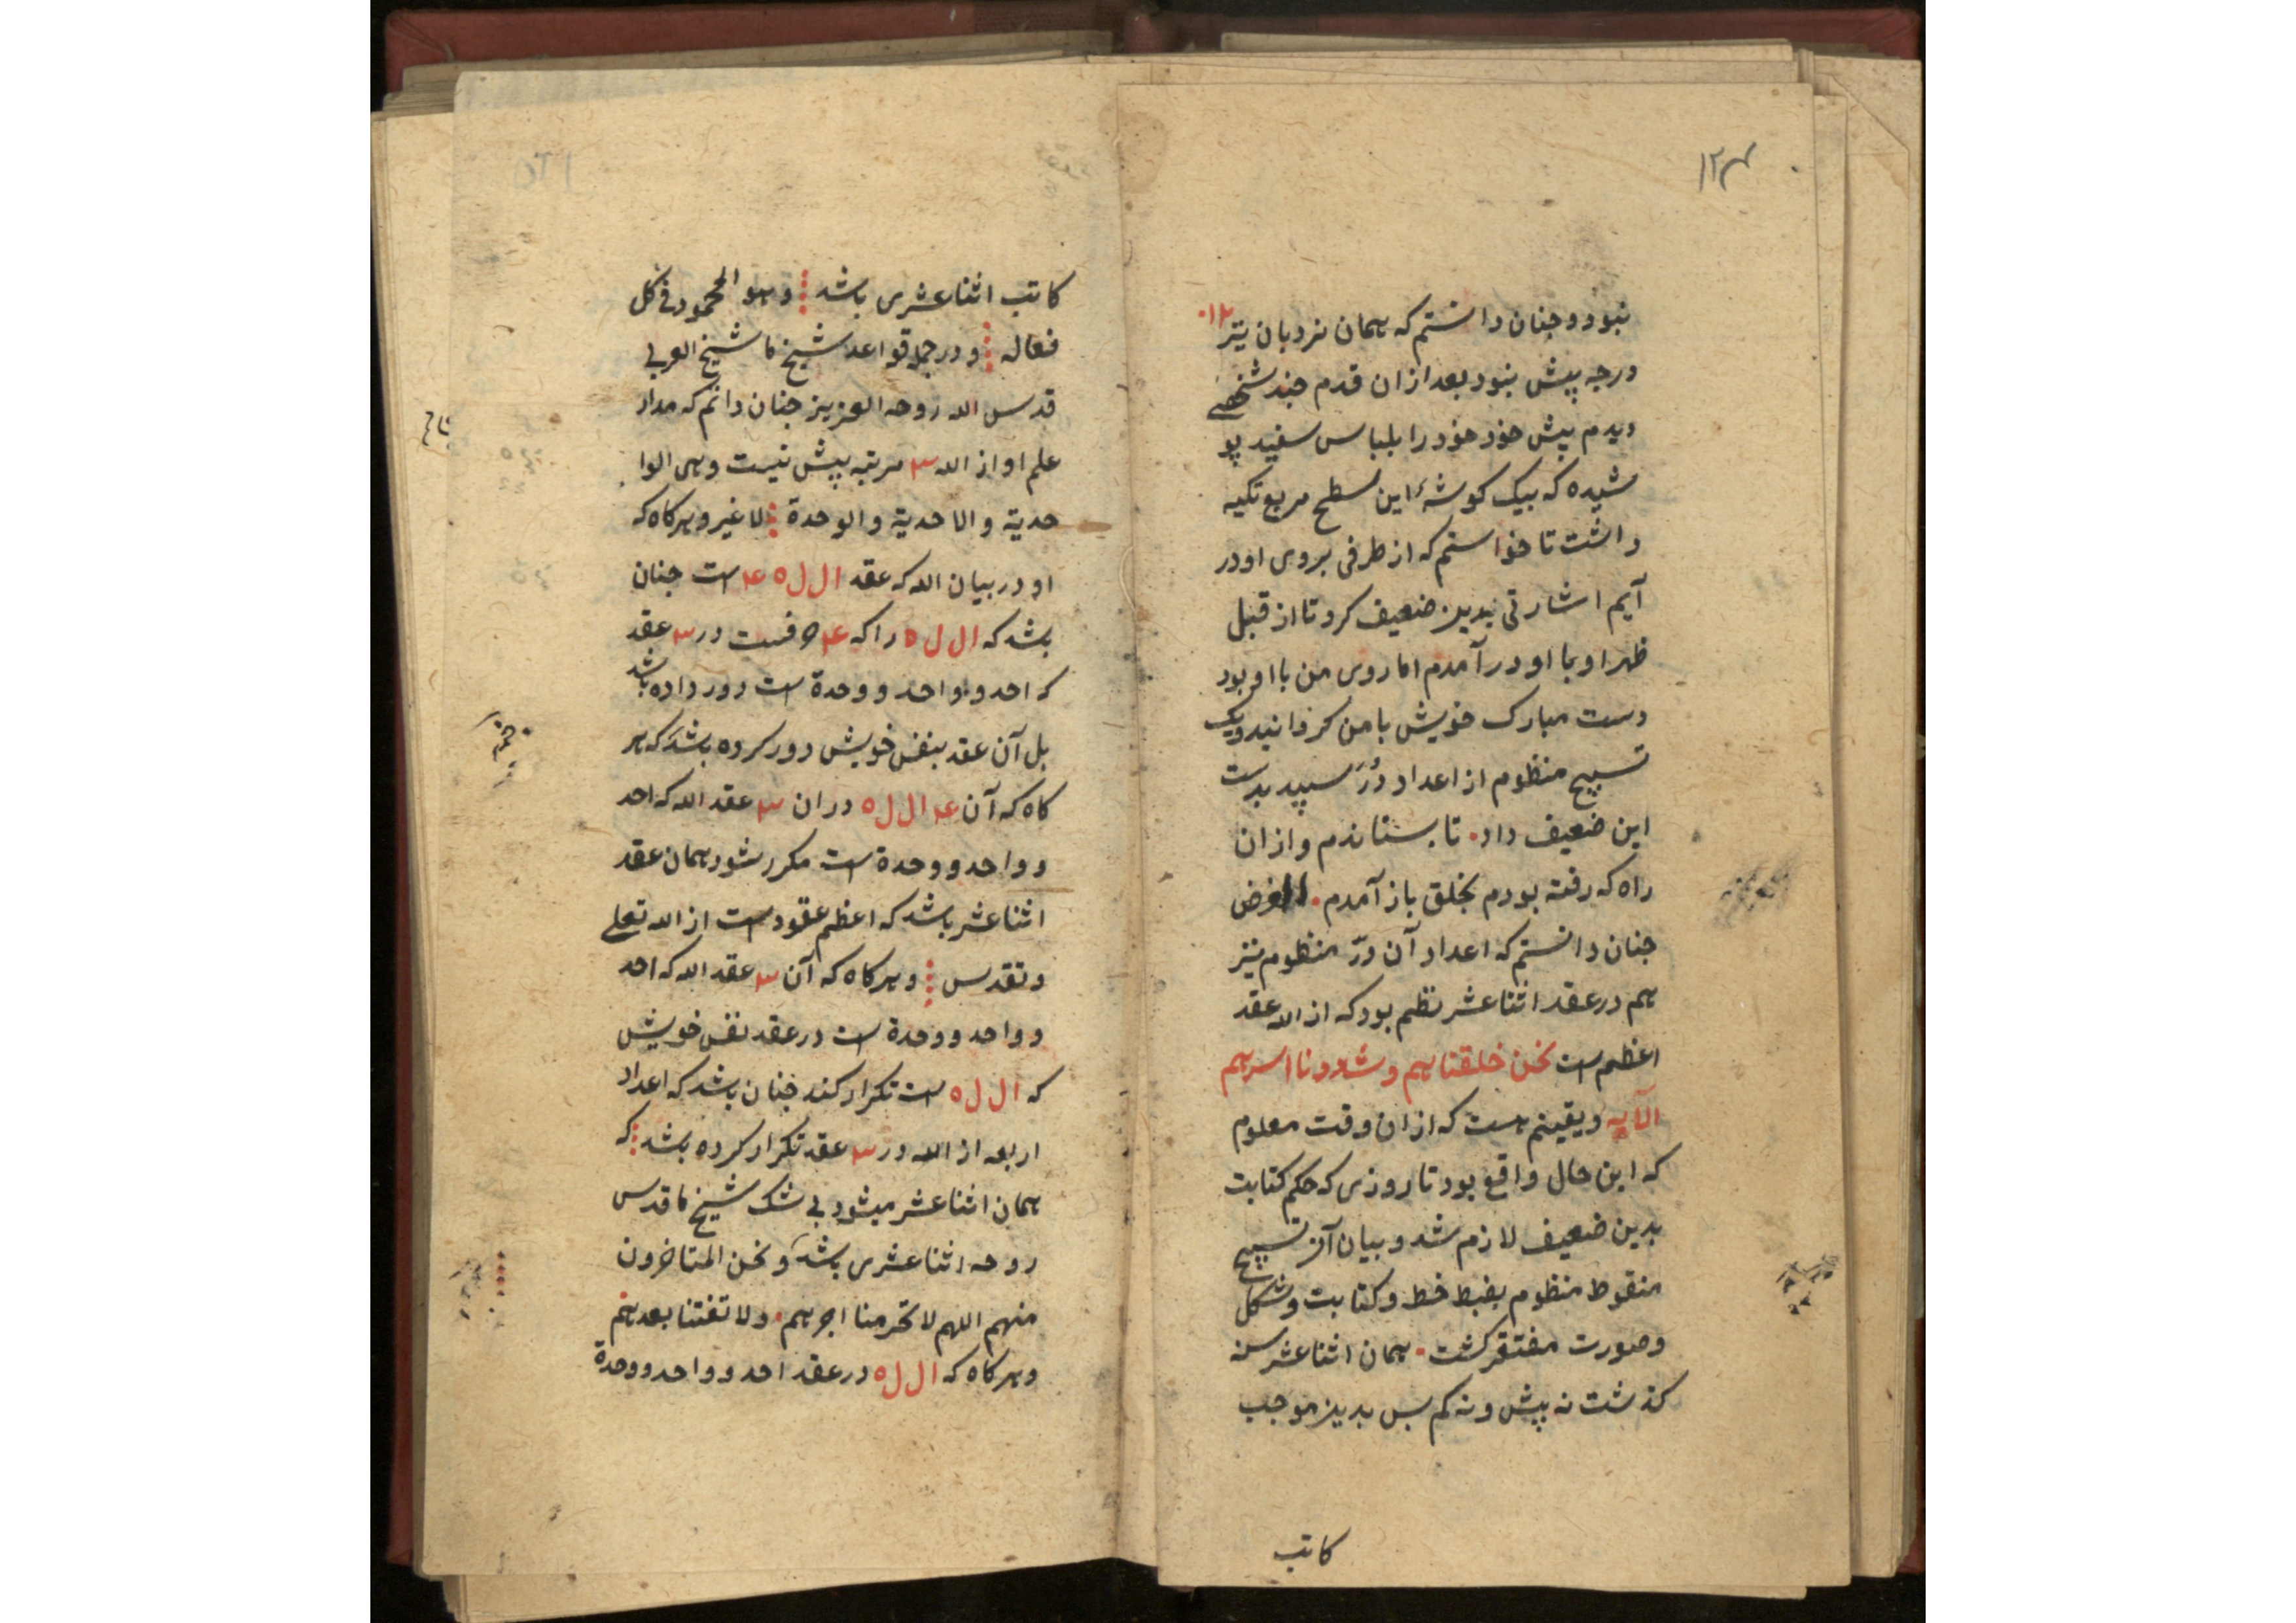 ۱۲۴
نبود و چنان دانستم که همان نردبان نیز ۱۲
درجه پیش نبود بعد ازان قدم چند شخصے
دیدم پیش خود خود را بلباس سفید پو
شیده که بیک کوشهٔ این سطح مربع تکیه
داشت تا خواستم که از طرفی بروی او در
آیم اشارتی بدین ضعیف کرد تا از قبل
ظهر او بما او در آمدم اما روی من با او بود
دست مبارک خویش با من کردانید و یک
تسبیح منظوم از اعداد دُرّ سپید بدست
این ضعیف داد تا بستاندم و ازان
راه که رفته بودم بخلق باز آمدم الغرض
چنان دانستم که اعداد آن درّ منظوم نیز
هم در عقد اثنا عشر نظم بود که از الله عقد
اعظم است نحن خلقناهم و شددنا اسرهم
الآیه و یقینم هست که ازان وقت معلوم
که این حال واقع بود تا روزی که حکم کتابت
بدین ضعیف لازم شد و بیان آن تسبیح
منقوط منظوم بضبط خط و کتابت و شکل
و صورت مفتقر کشت همان اثنا عشر سنه
کذشت نه پیش و نه کم بس بدین موجب
کاتب
کاتب اثنا عشری باشد و هو المحمود فی کل
فعاله و در جمله قواعد شیخ ما شیخ العربی
قدس الله روحه العزیز چنان دانم که مدار
علم او از الله ۳ مرتبه پیش نیست و هی الوا
حدیة و الاحدیة و الوحدة لا غیر و هرکاه که
او در بیان الله که عقد ا ل ل ه ۴ است چنان
باشد که ا ل ل ه را که ۴ حرفست در ۳ عقد
که احد و واحد و وحدة است دور داده باشد
بل آن عقد بنفس خویش دور کرده باشد که هر
کاه که آن ۴ ا ل ل ه دران ۳ عقد الله که احد
و واحد و وحدة است مکرر شود همان عقد
اثنا عشر باشد که اعظم عقود است از الله تعلی
و تقدس و هرکاه که آن ۳ عقد الله که احد
و واحد و وحدة است در عقد نفس خویش
که ا ل ل ه است تکرار کند چنان باشد که اعداد
اربعه از الله در ۳ عقد تکرار کرده باشد که
همان اثنا عشر میشود بی شک شیخ ما قدس
روحه اثنا عشری باشد و نحن المتاخرون
منهم اللهم لا تحرمنا اجرهم و لا تفتنا بعدهم
و هرکاه که ا ل ل ه در عقد احد و واحد و وحدة